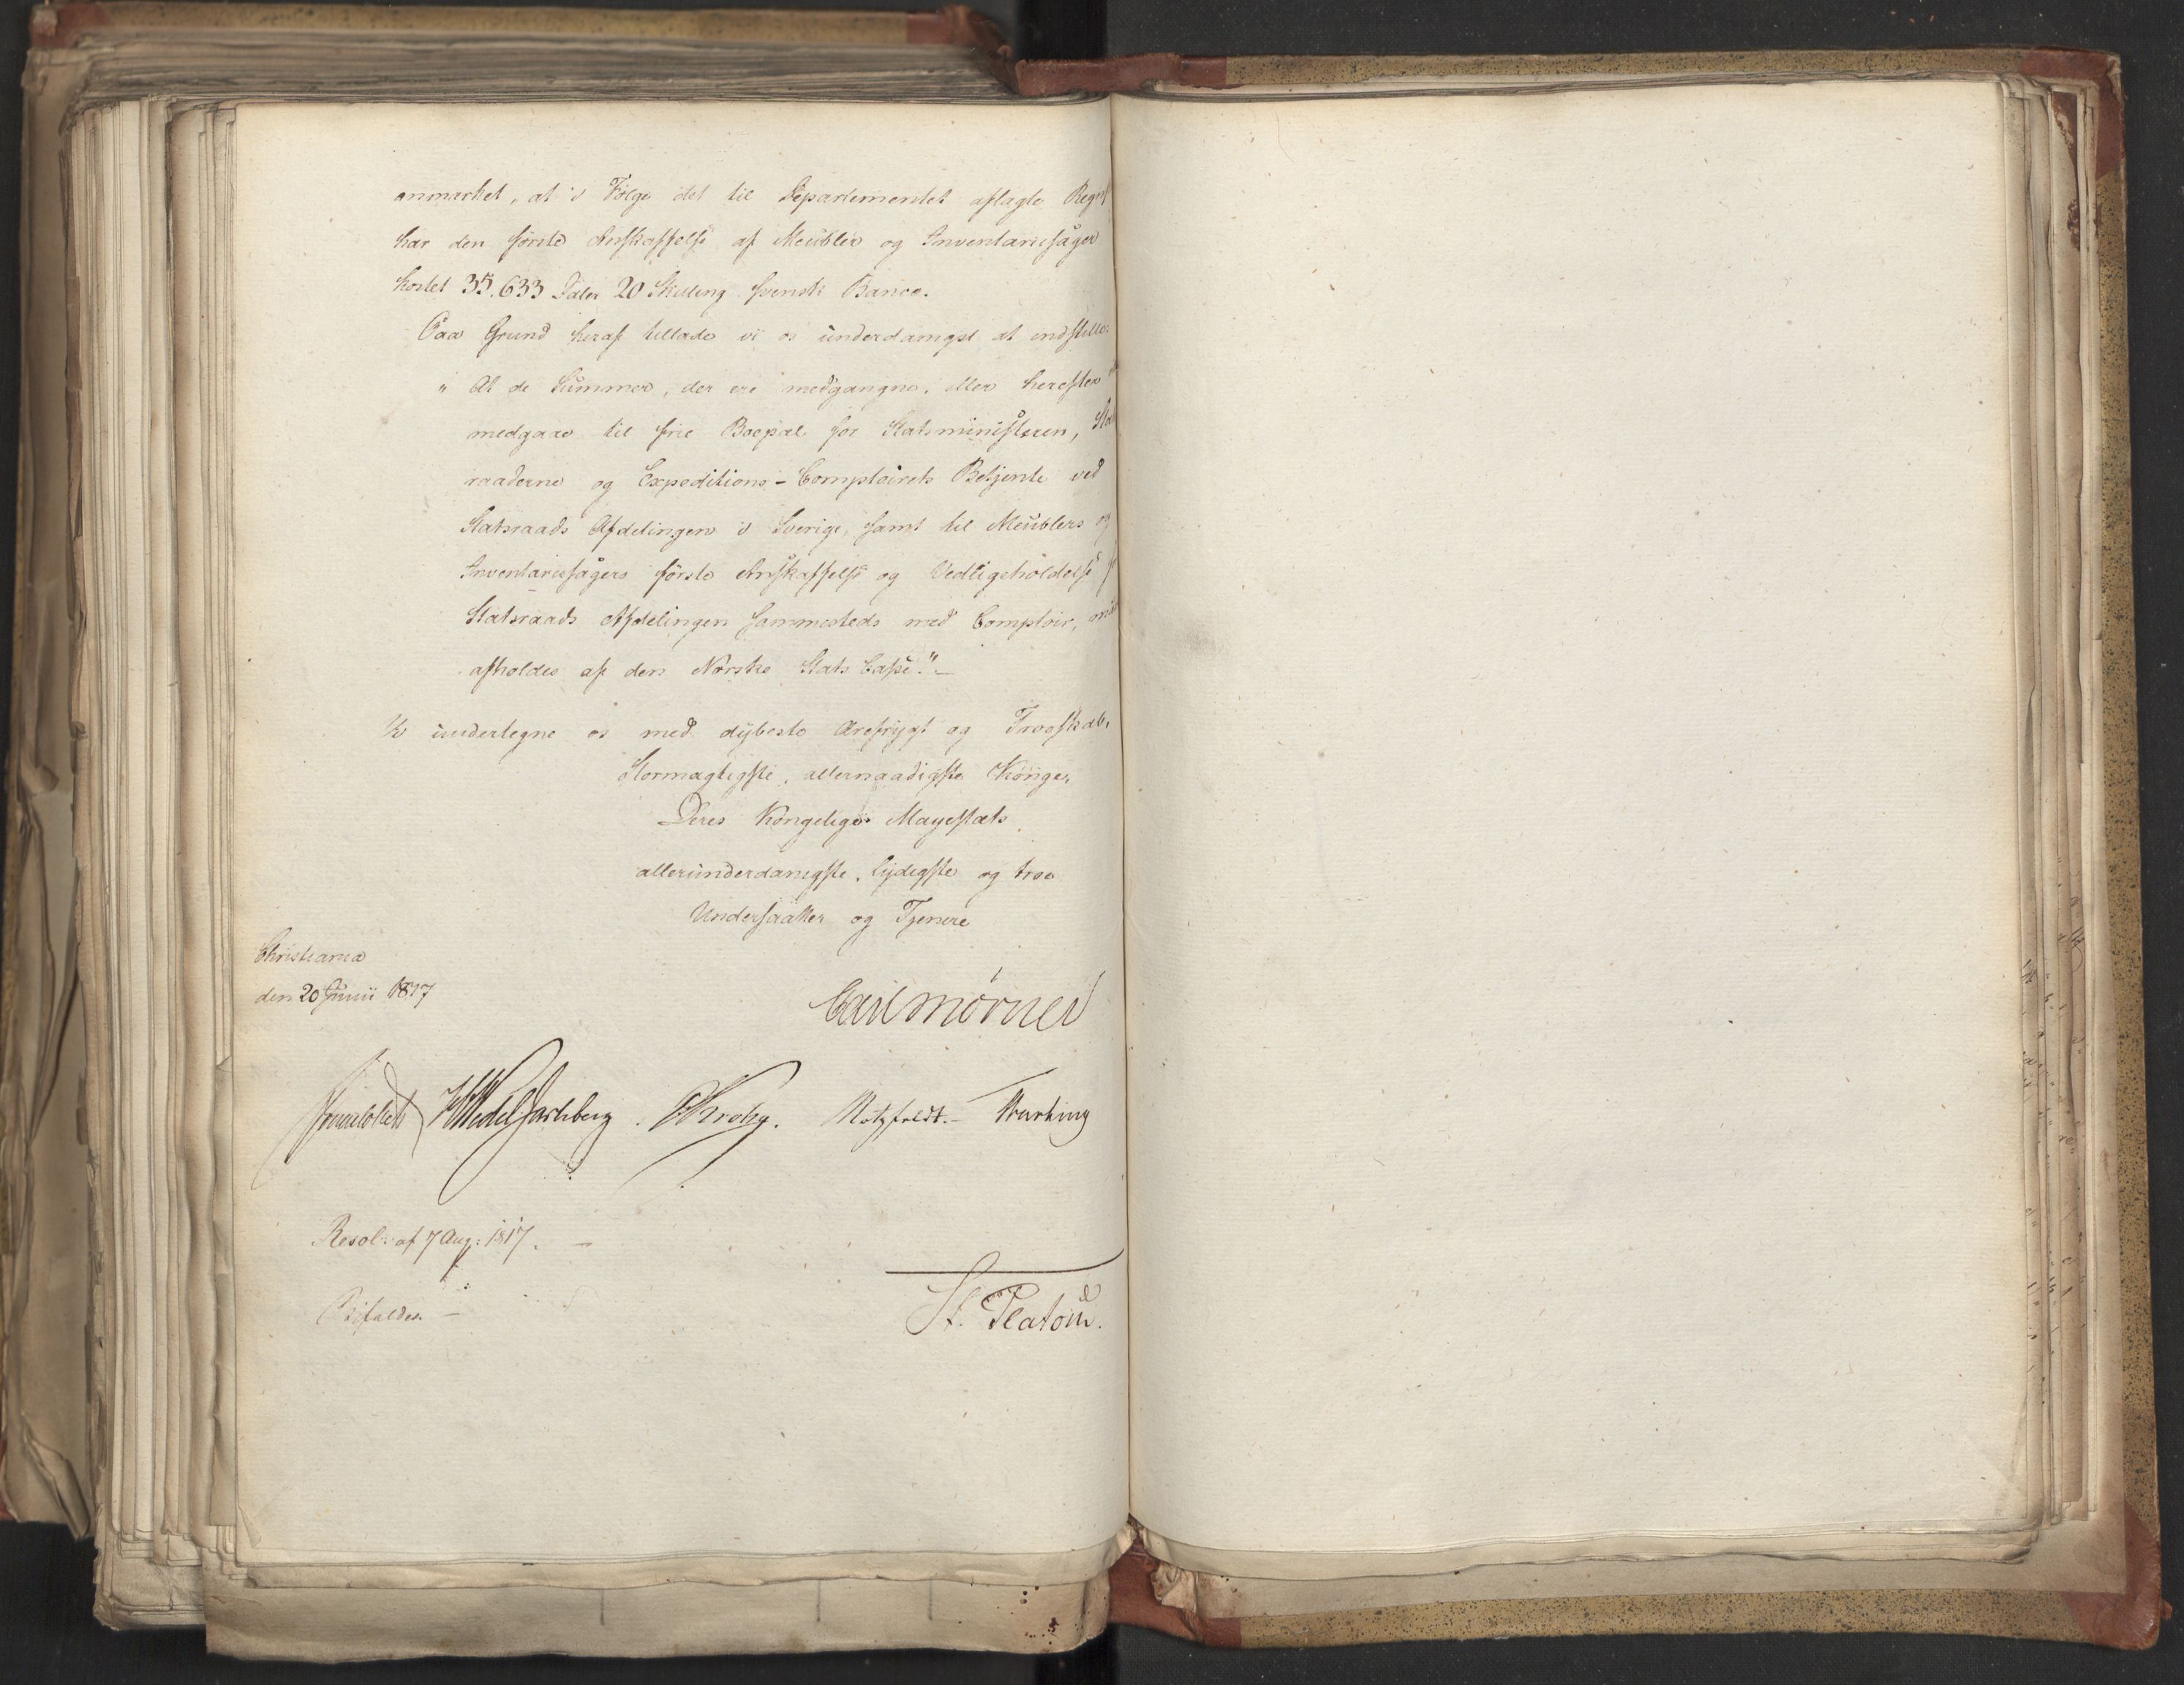 anmærket, at i Følge det til Departementet aflagte Regn
har den første Anskaffelse af Meubler og Inventariesager
kostet 35,633 Daler 20 Skilling svensk Banco.
Paa Grund heraf tillade vi os underdanigst at indstille:
" At de Summer, der ere medgangne, eller herefter
medgaae til frie Boepæl for Statsministeren, Stats
raaderne og Expeditions-Comptoirets Betjente ved
Statsraads Afdelingen i Sverige, samt til Meublers og
Inventariesagers første Anskaffelse og Vedligeholdelse
Statsraads Afdelingen sammesteds med Comptoir,
afholdes af den Norske Stats Casse." —
Vi undertegne os med dybeste Ærefrygt og Troeskab,
Stormægtigste, allernaadigste Konge,
Deres Kongelige Mayestæts
allerunderdanigste, lydigste og troe
Undersaatter og Tjenere
Christiania
den 20 Junii 1817
Carl Mörner
HWedel Jarlsberg Krohg. Motzfeldt. —
Resol: af 7 Aug: 1817. —
Bifaldes. —
Platou.